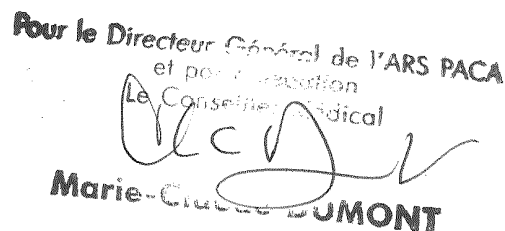 Pour le Directeur Général de l'ARS PACA
et par délégation
Le Conseiller Médical
Marie-Claude DUMONT